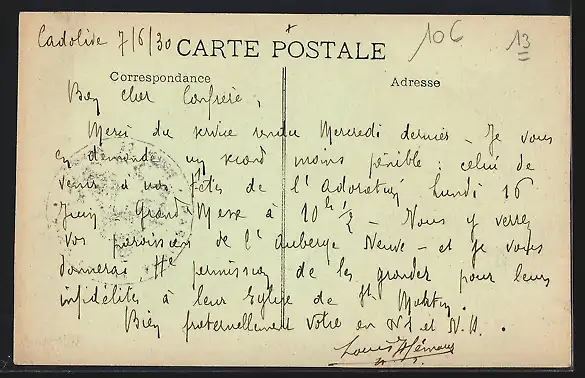 Cadolive 7/6/30
CARTE POSTALE
10€
13
Correspondance
Adresse
Bien cher Confrère,
Merci du service rendu Mercredi dernier _ Je vous
en demande un second moins pénible : celui de
venir à nos fêtes de l'Adoration Lundi 16
Juin Grand Messe à 10h 1/2 _ Vous y verrez
Vos paroissiens de l'Auberge Neuve _ et Je vous
donnerai permission de les gronder pour leurs
infidélités à leur Eglise de St Martin.
Bien fraternellement Votre en N.S et N.D.
Louis